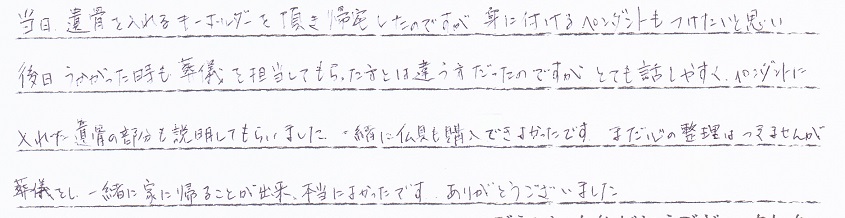 当日、遺骨を入れるキーホルダーを頂き帰宅したのですが 身に付けるペンダントもつけたいと思い
後日うかがった時も葬儀を担当してもらった方とは違う方だったのですが とても話しやすく、ペンダントに
入れた遺骨の部分も説明してもらいました。一緒に仏具も購入できよかったです。まだ心の整理はつきませんが
葬儀をし、一緒に家に帰ることが出来、本当によかったです。ありがとうございました